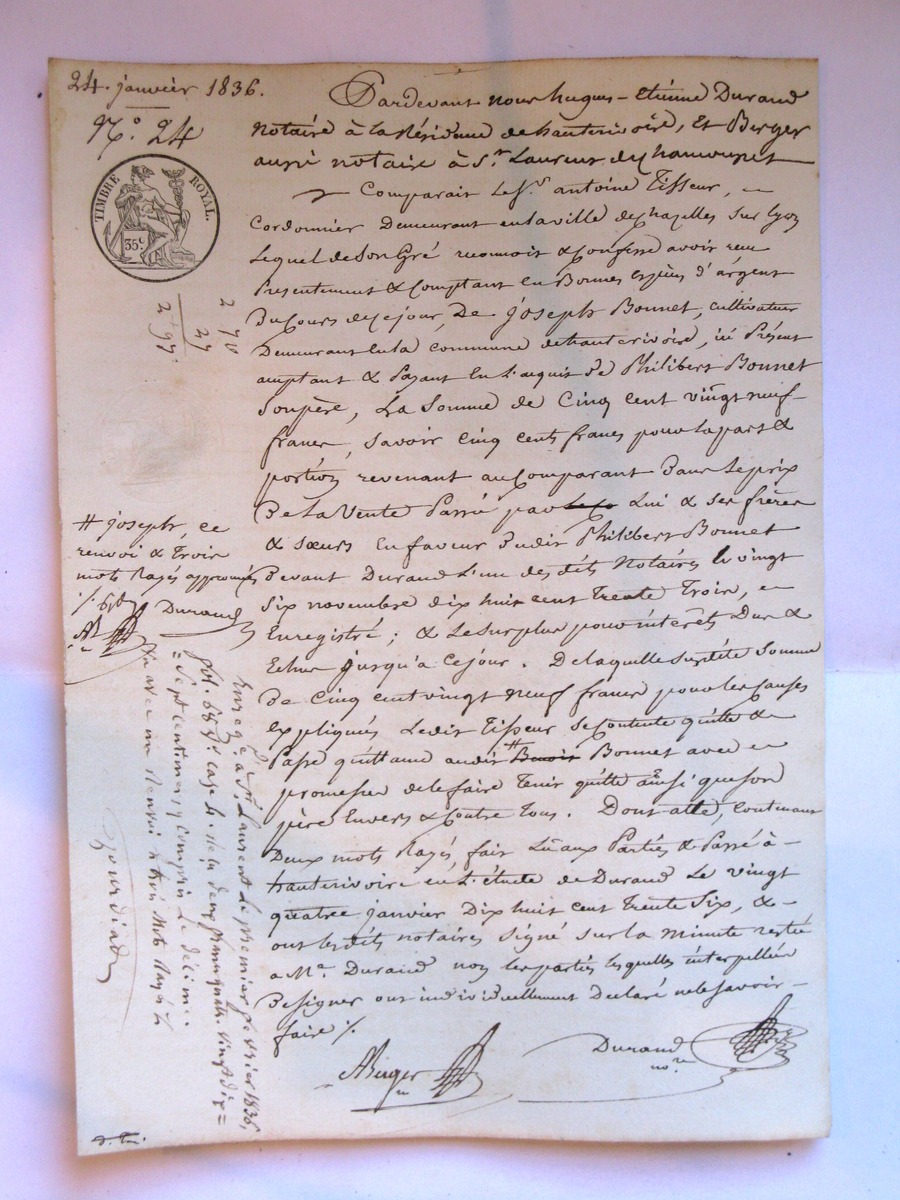 24. janvier 1836.
N.º 24
TIMBRE ROYAL.
35 c.
2 70
27
2 97.
Pardevant nous hugues-etienne Durand
notaire à la Résidence de hauterivoire, et Berger
aussi notaire à St. Laurent de Chamousset
Comparait le Sr. antoine Tisseur,
Cordonnier Demeurant en la ville de Chazelles sur lyon
Lequel de son Gré reconnoit & Confesse avoir reçu
Présentement & Comptant en Bonnes Espèces d'argent
Du Cours de ce jour, De joseph Bonnet, cultivateur
Demeurant en la commune de hauterivoire, ici Présent
acceptant & Payant en l'acquit de Philibert Bonnet
son père, La Somme de Cinq cent vingt neuf
francs, savoir Cinq cents francs pour la part &
portion revenant au Comparant Dans le prix
De la Vente Passé par Lui & ses frères
& sœurs En faveur Dudit Philibert Bonnet
Devant Durand L'un des dits Notaires le vingt
Six novembre dix huit cent Trente Trois,
Enregistré; & Le surplus pour intérêts Dus &
Echus jusqu'à ce jour. De laquelle susdite Somme
De Cinq cent vingt neuf francs pour les Causes
Expliquées Ledit Tisseur se Contente quitte &
Passe quittance audit # Benoit Bonnet avec
promesse de le faire Tenir quitte ainsi que son
père Envers & Contre Tous. Dont acte, contenant
Deux mots Rayés, fait Lu aux Parties & Passé à
hauterivoire en L'étude de Durand Le vingt
quatre janvier Dix huit cent Trente Six, &
ont lesdits notaires Signé sur la minute restée
a Me. Durand non les parties lesquelles interpellées
De signer ont individuellement Déclaré ne le savoir
faire /.
ABerger
Durand
nore.
# joseph, ce
renvoi & Trois
mots Rayés approuvés
Durand
Enregé. à St. Laurent le premier février 1836,
fol. 68 Ro. case 4. reçu deux francs quatre vingt dix =
= sept centimes y compris le décime.
avec un Renvoi & trois Mots Rayés